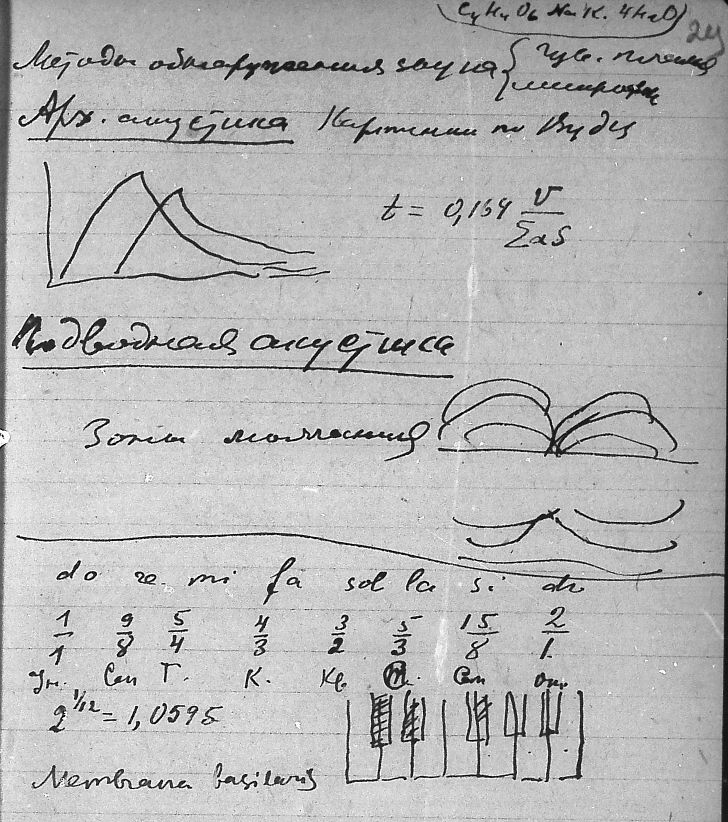 C4H4O6 Na K. 4H2O
24
Методы обнаружения звука { Чув. пламя
микрофон
Арх. акустика Картинки по Вуду
t = 0,164 V / ΣαS
Подводная акустика
Зоны молчания
do re mi fa sol la si do
1/1 9/8 5/4 4/3 3/2 5/3 15/8 2/1
Ун. Сек Т. К. Кв Сеп Окт
2^1/12 = 1,0595
Membrana basilaris